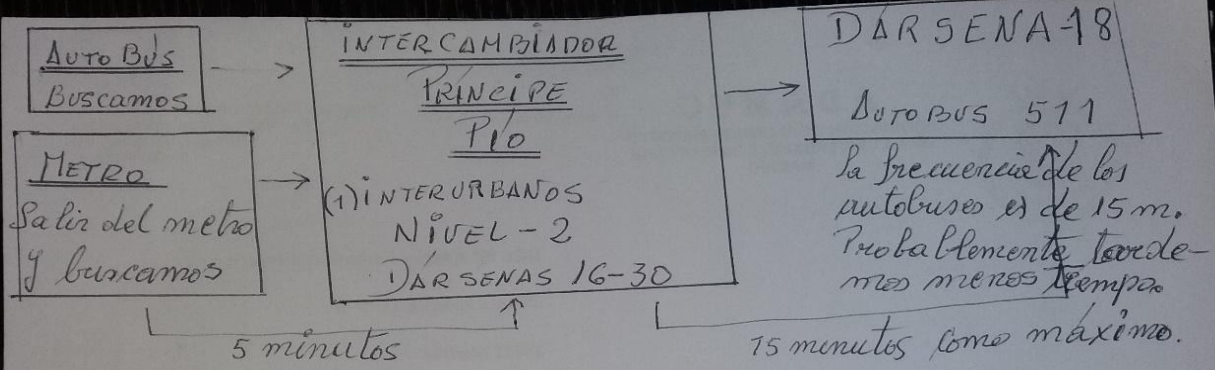 AUTOBÚS
BUSCAMOS
METRO
Salir del metro
y buscamos
INTERCAMBIADOR
PRÍNCIPE
PÍO
(1) INTERURBANOS
NIVEL-2
DÁRSENAS 16-30
DÁRSENA-18
AUTOBUS 511
La frecuencia de los
autobuses es de 15 m.
Probablemente tarde-
mos menos tiempo.
5 minutos
15 minutos como máximo.